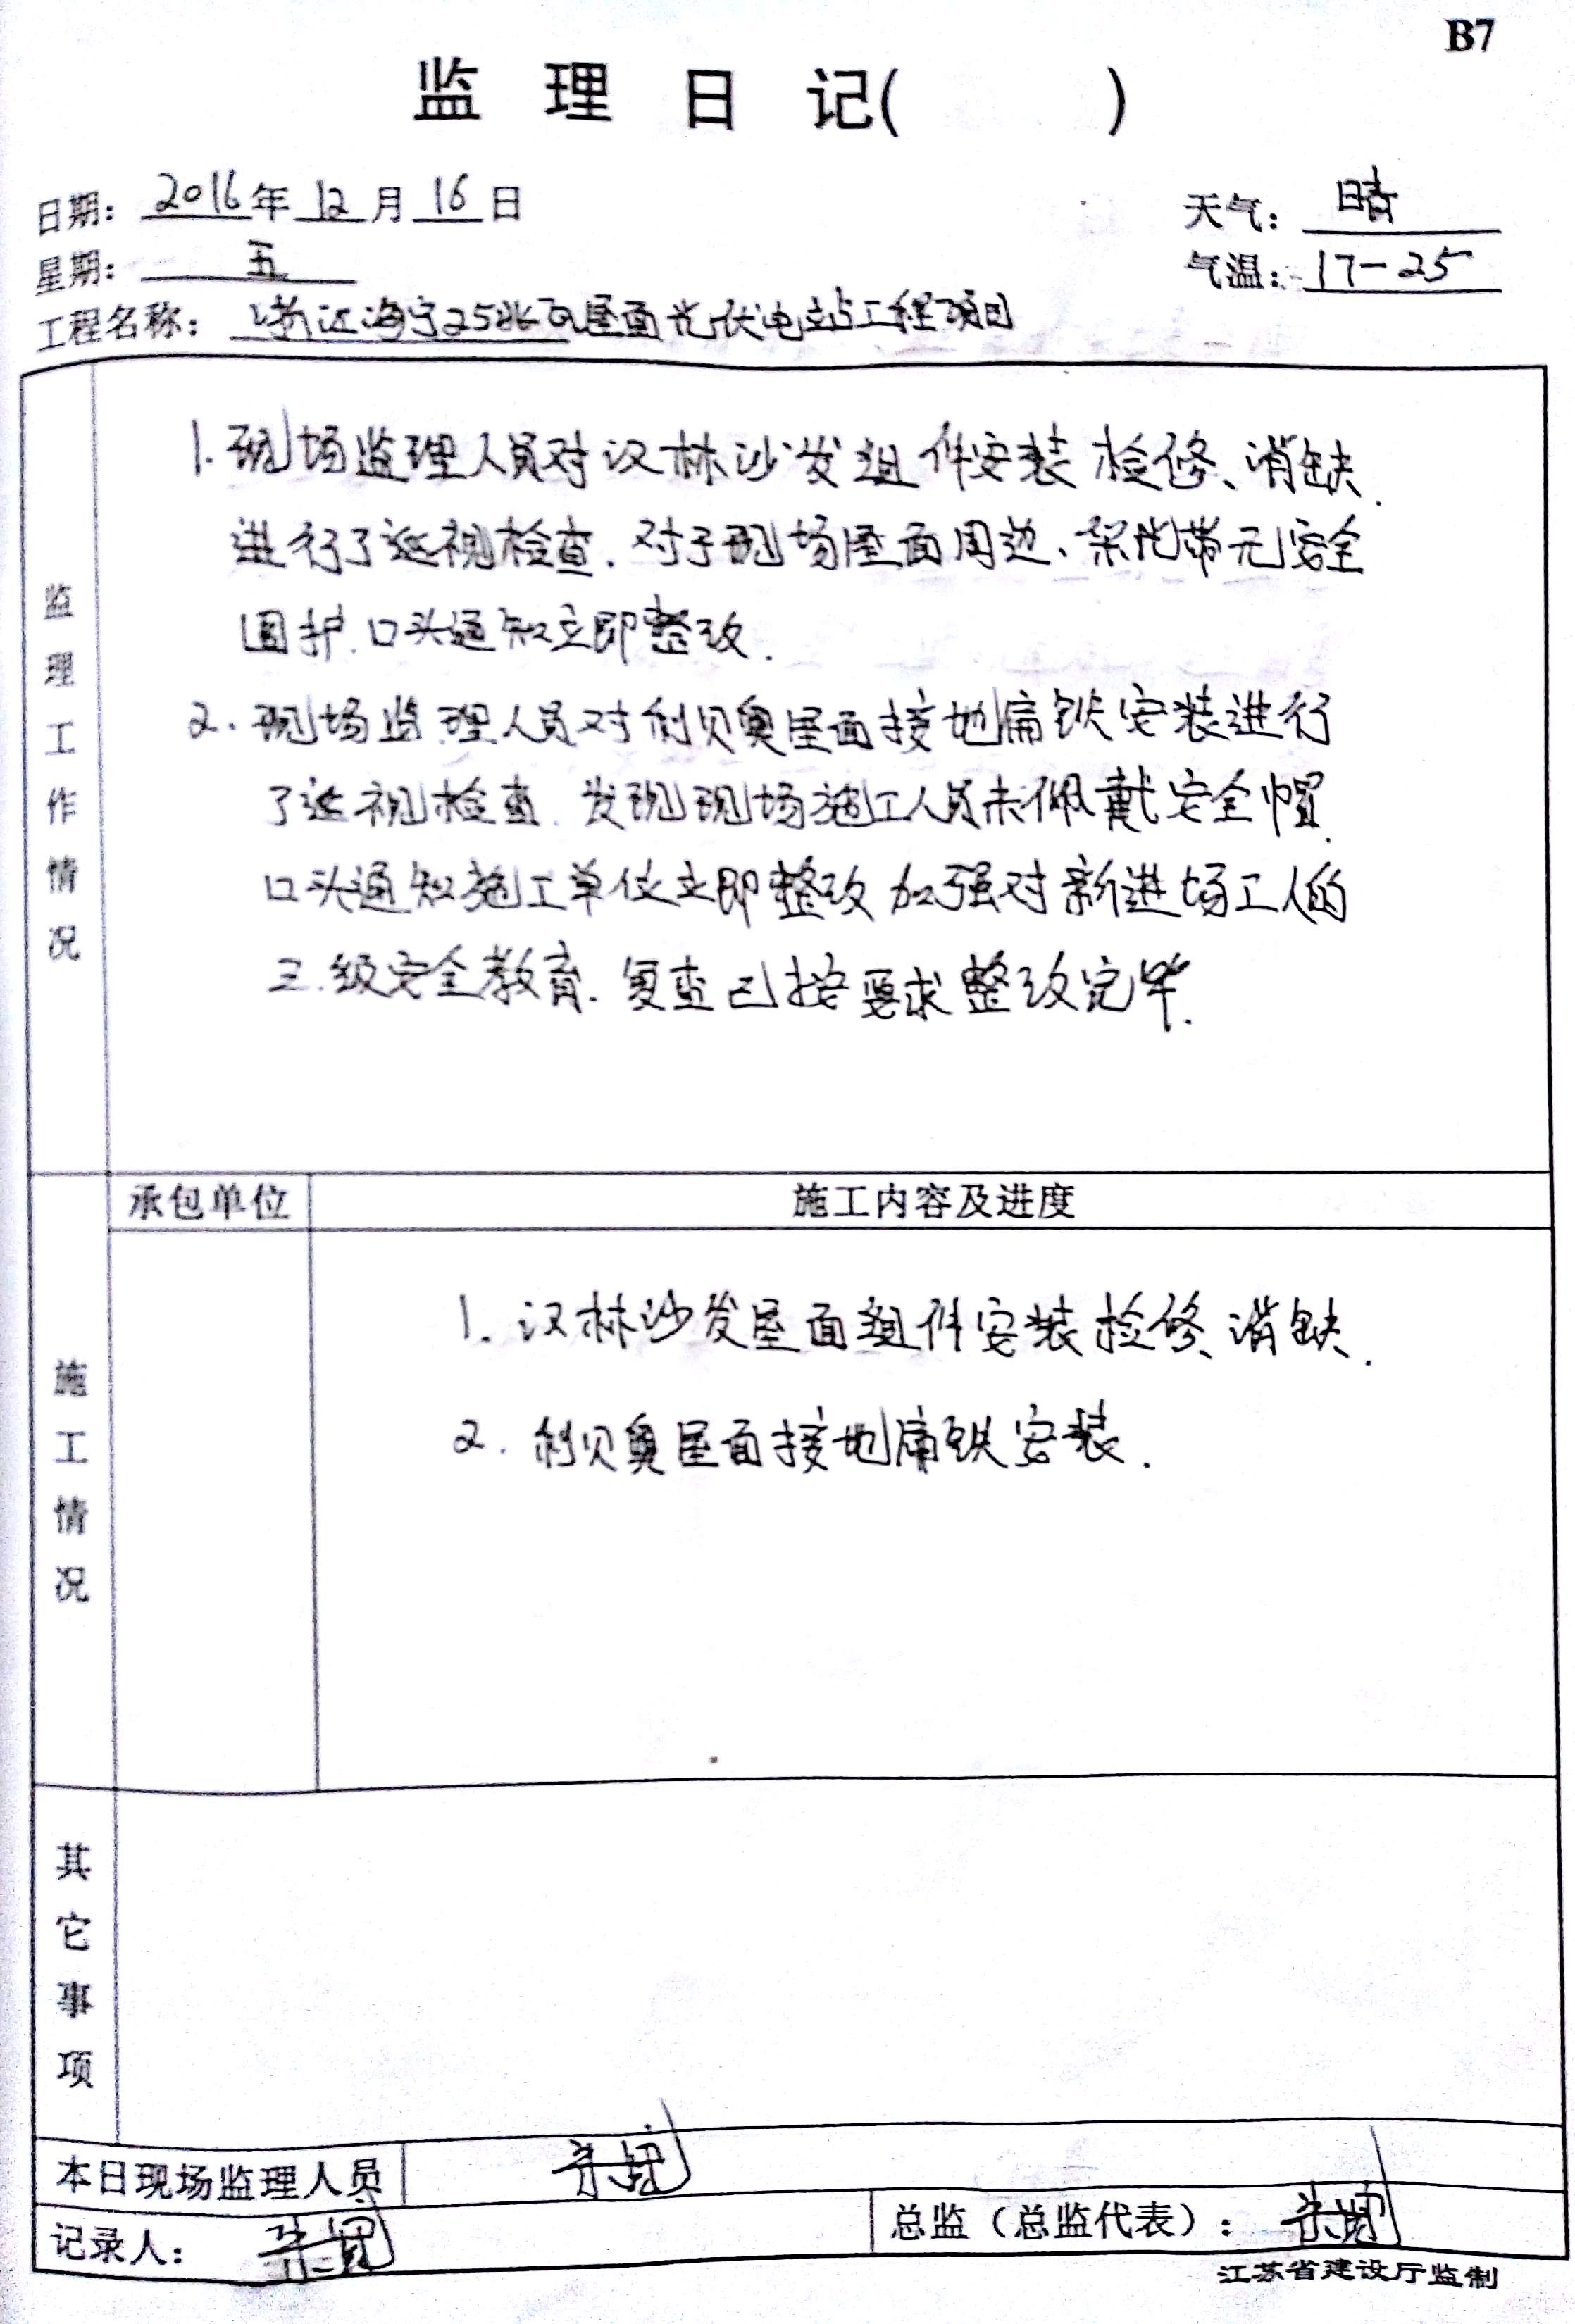 B7
监理日记(    )
日期：2016年12月16日
天气：晴
星期：五
气温：17-25
工程名称：浙江海宁25兆瓦屋面光伏电站工程项目
监理工作情况
1.现场监理人员对汉林沙发组件安装检修、消缺.
进行了巡视检查.对于现场屋面周边、采光带无安全
围护.口头通知立即整改.
2.现场监理人员对利贝奥屋面接地扁铁安装进行
了巡视检查.发现现场施工人员未佩戴安全帽.
口头通知施工单位立即整改加强对新进场工人的
三级安全教育.复查已按要求整改完毕.
承包单位
施工内容及进度
施工情况
1.汉林沙发屋面组件安装检修、消缺.
2.利贝奥屋面接地扁铁安装.
其它事项
本日现场监理人员
记录人：
总监（总监代表）：
江苏省建设厅监制